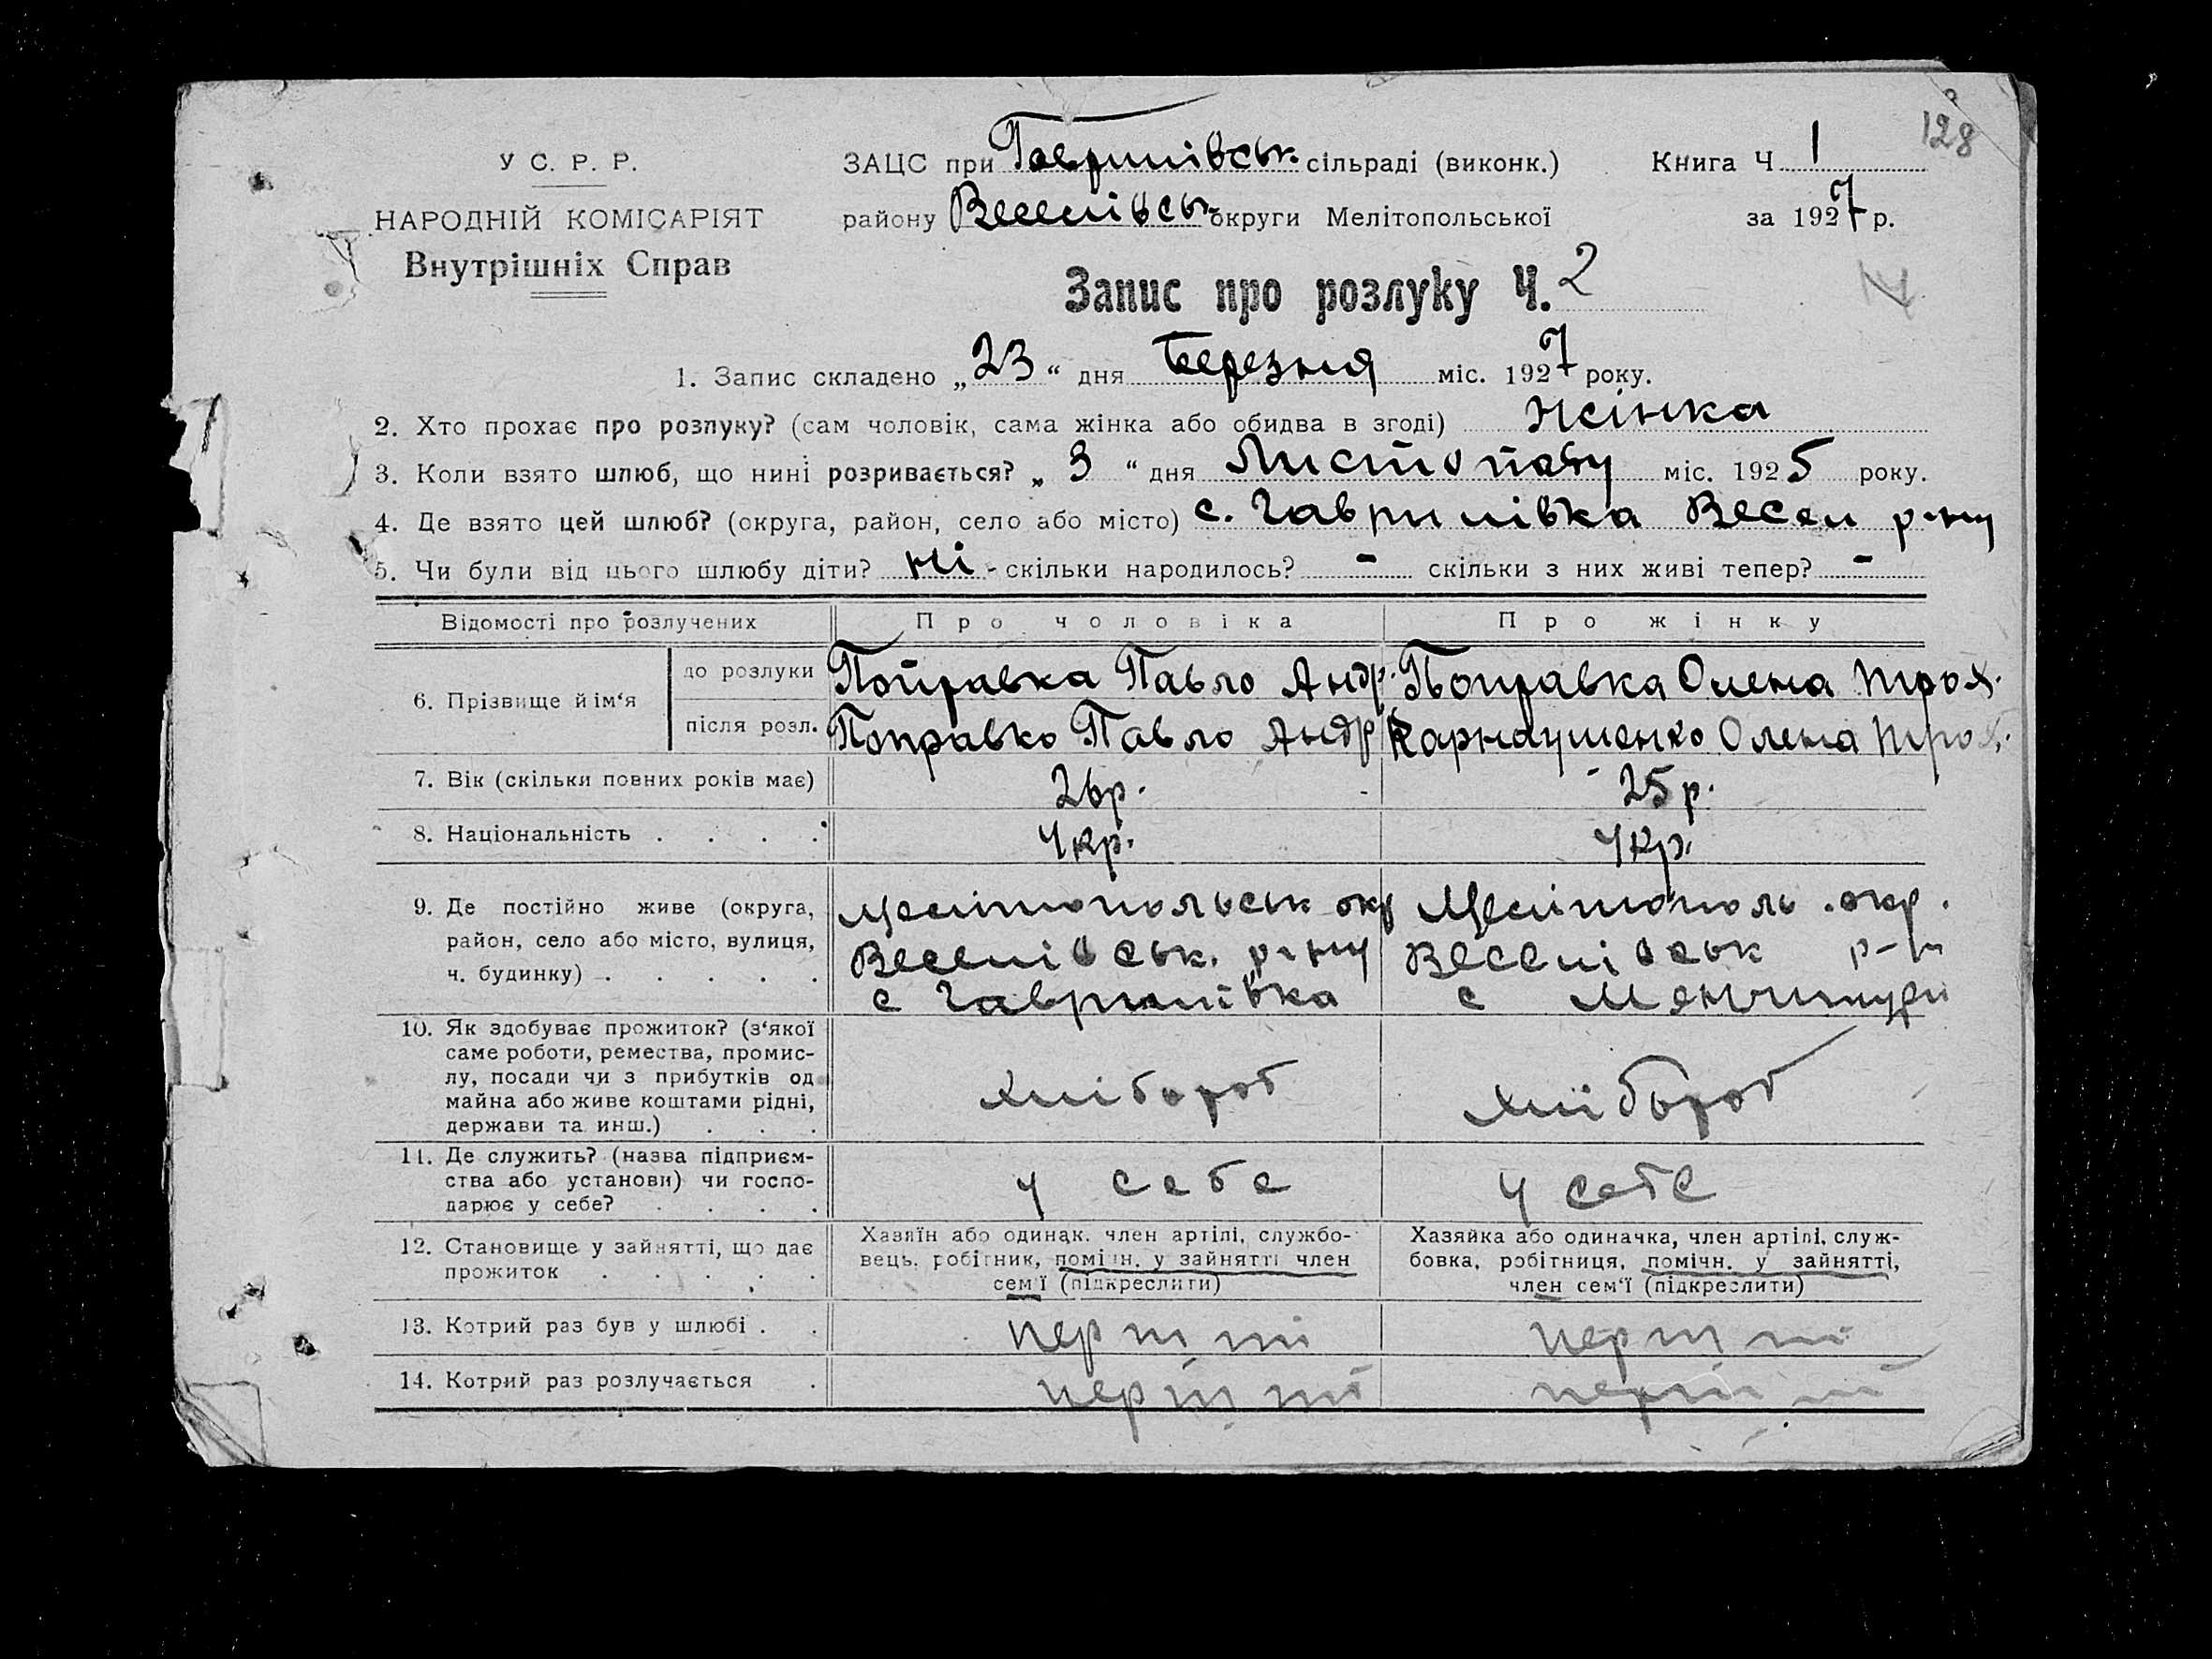 128
У С. Р. Р.
НАРОДНІЙ КОМІСАРІЯТ
Внутрішніх Справ
ЗАЦС при Гаврилівськ. сільраді (виконк.)
Книга Ч. 1
району Веселівськ. округи Мелітопольської
за 1927 р.
Запис про розлуку Ч. 2
1. Запис складено „23“ дня Березня міс. 1927 року.
2. Хто прохає про розлуку? (сам чоловік, сама жінка або обидва в згоді) Жінка
3. Коли взято шлюб, що нині розривається? „3“ дня Листопаду міс. 1925 року.
4. Де взято цей шлюб? (округа, район, село або місто) с. Гаврилівка Весел р-ну
5. Чи були від цього шлюбу діти? Ні - скільки народилось? - скільки з них живі тепер? -
Відомості про розлучених
Про чоловіка
Про жінку
6. Прізвище й ім‘я
до розлуки
Поправка Павло Андр.
Поправка Олена Трох.
після розл.
Поправко Павло Андр
Карнаушенко Олена Трох.
7. Вік (скільки повних років має)
26р.
25р.
8. Національність . . . .
Укр.
Укр.
9. Де постійно живе (округа,
район, село або місто, вулиця,
ч. будинку) . . . . .
Мелітопольськ окр
Веселівськ. р-ну
с Гаврилівка
Мелітополь. окр.
Веселівськ р-н
с Менчикури
10. Як здобуває прожиток? (з‘якої
саме роботи, ремества, промис-
лу, посади чи з прибутків од
майна або живе коштами рідні,
держави та инш.) . . .
хлібороб
хлібороб
11. Де служить? (назва підприєм-
ства або установи) чи госпо-
дарює у себе? . . . .
у себе
у себе
12. Становище у зайнятті, що дає
прожиток . . . . .
Хазяїн або одинак. член артілі, службо-
вець, робітник, помічн. у зайнятті член
сем‘ї (підкреслити)
Хазяйка або одиначка, член артілі, служ-
бовка, робітниця, помічн. у зайнятті,
член сем‘ї (підкреслити)
13. Котрий раз був у шлюбі . .
перший
перший
14. Котрий раз розлучається .
перший
перший